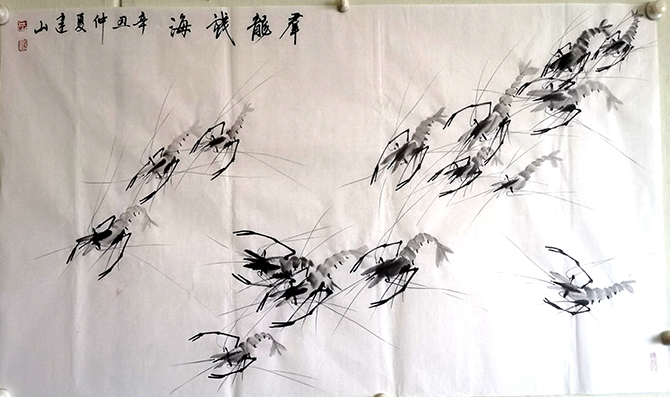 羣龍戲海 辛丑仲夏建山